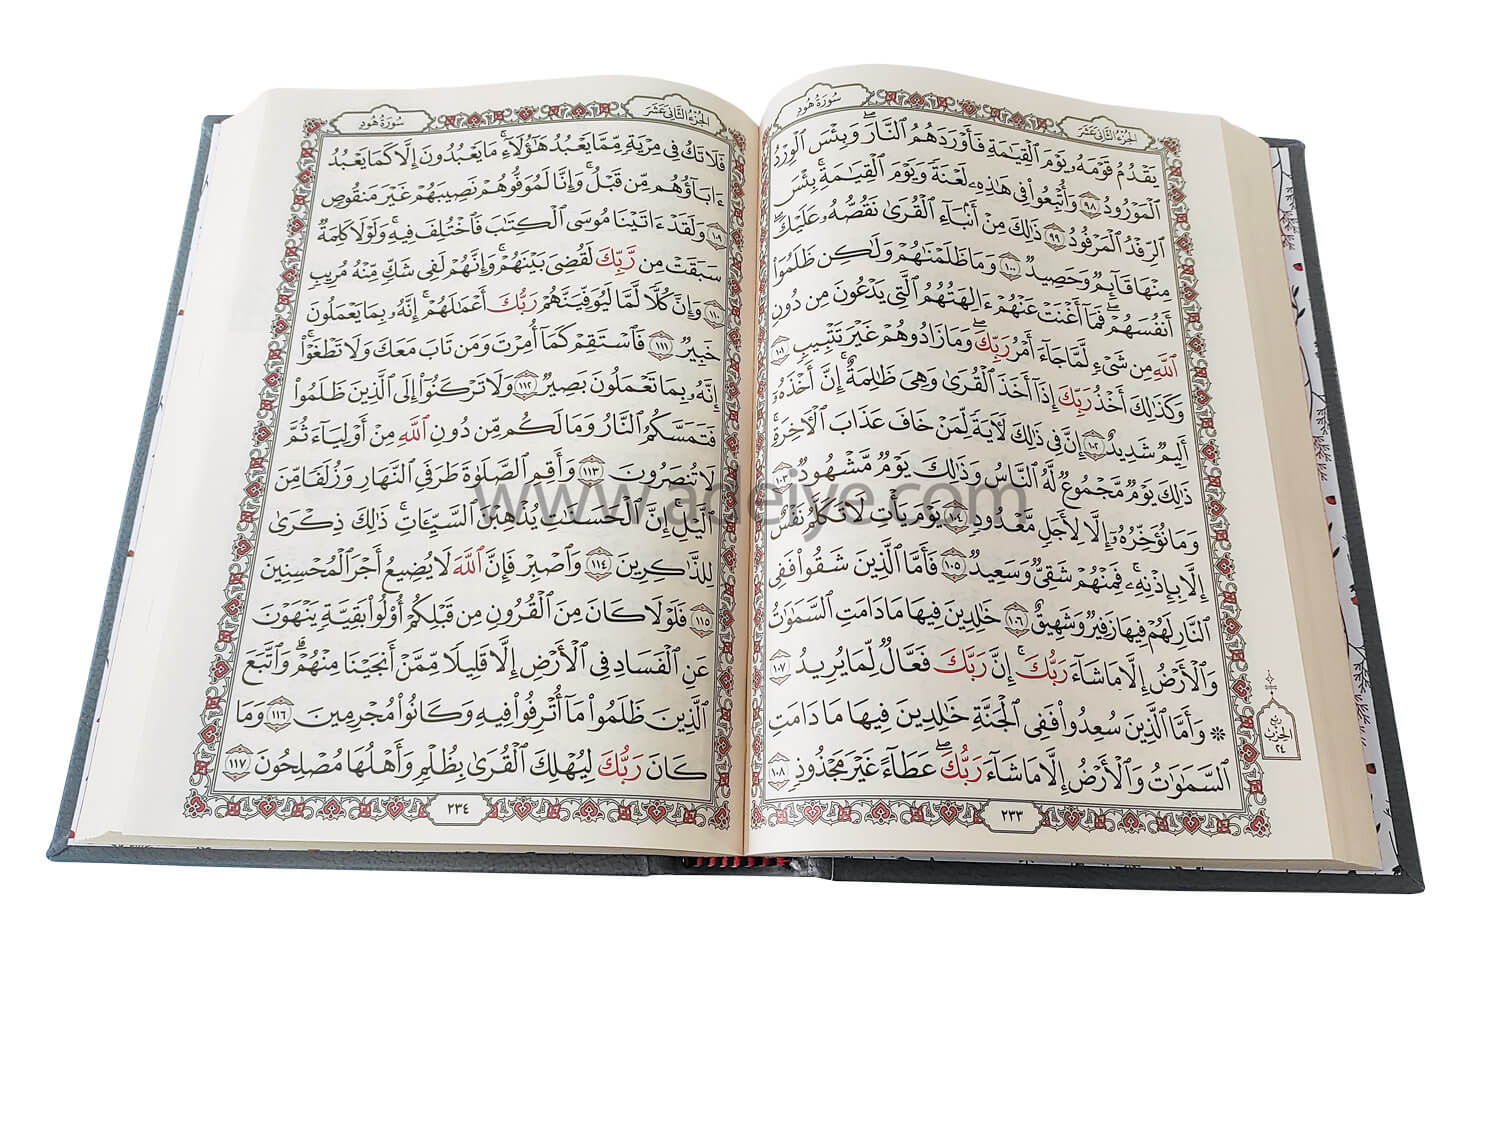 سُورَةُ هُودٍ
الجُزْءُ الثَّانِيَ عَشَرَ
يَقْدُمُ قَوْمَهُۥ يَوْمَ ٱلْقِيَٰمَةِ فَأَوْرَدَهُمُ ٱلنَّارَۖ وَبِئْسَ ٱلْوِرْدُ
ٱلْمَوْرُودُ ٩٨ وَأُتْبِعُوا۟ فِى هَٰذِهِۦ لَعْنَةً وَيَوْمَ ٱلْقِيَٰمَةِۚ بِئْسَ
ٱلرِّفْدُ ٱلْمَرْفُودُ ٩٩ ذَٰلِكَ مِنْ أَنۢبَآءِ ٱلْقُرَىٰ نَقُصُّهُۥ عَلَيْكَۖ
مِنْهَا قَآئِمٌ وَحَصِيدٌ ١٠٠ وَمَا ظَلَمْنَٰهُمْ وَلَٰكِن ظَلَمُوٓا۟
أَنفُسَهُمْۖ فَمَآ أَغْنَتْ عَنْهُمْ ءَالِهَتُهُمُ ٱلَّتِى يَدْعُونَ مِن دُونِ
ٱللَّهِ مِن شَىْءٍ لَّمَّا جَآءَ أَمْرُ رَبِّكَۖ وَمَا زَادُوهُمْ غَيْرَ تَتْبِيبٍ ١٠١
وَكَذَٰلِكَ أَخْذُ رَبِّكَ إِذَآ أَخَذَ ٱلْقُرَىٰ وَهِىَ ظَٰلِمَةٌۚ إِنَّ أَخْذَهُۥٓ
أَلِيمٌ شَدِيدٌ ١٠٢ إِنَّ فِى ذَٰلِكَ لَءَايَةً لِّمَنْ خَافَ عَذَابَ ٱلْءَاخِرَةِۚ
ذَٰلِكَ يَوْمٌ مَّجْمُوعٌ لَّهُ ٱلنَّاسُ وَذَٰلِكَ يَوْمٌ مَّشْهُودٌ ١٠٣
وَمَا نُؤَخِّرُهُۥٓ إِلَّا لِأَجَلٍ مَّعْدُودٍ ١٠٤ يَوْمَ يَأْتِ لَا تَكَلَّمُ نَفْسٌ
إِلَّا بِإِذْنِهِۦۚ فَمِنْهُمْ شَقِىٌّ وَسَعِيدٌ ١٠٥ فَأَمَّا ٱلَّذِينَ شَقُوا۟ فَفِى
ٱلنَّارِ لَهُمْ فِيهَا زَفِيرٌ وَشَهِيقٌ ١٠٦ خَٰلِدِينَ فِيهَا مَا دَامَتِ ٱلسَّمَٰوَٰتُ
وَٱلْأَرْضُ إِلَّا مَا شَآءَ رَبُّكَۚ إِنَّ رَبَّكَ فَعَّالٌ لِّمَا يُرِيدُ ١٠٧
۞ وَأَمَّا ٱلَّذِينَ سُعِدُوا۟ فَفِى ٱلْجَنَّةِ خَٰلِدِينَ فِيهَا مَا دَامَتِ
ٱلسَّمَٰوَٰتُ وَٱلْأَرْضُ إِلَّا مَا شَآءَ رَبُّكَۖ عَطَآءً غَيْرَ مَجْذُوذٍ ١٠٨
ربع
الحزب
٢٤
٢٣٣
الجُزْءُ الثَّانِيَ عَشَرَ
سُورَةُ هُودٍ
فَلَا تَكُ فِى مِرْيَةٍ مِّمَّا يَعْبُدُ هَٰٓؤُلَآءِۚ مَا يَعْبُدُونَ إِلَّا كَمَا يَعْبُدُ
ءَابَآؤُهُم مِّن قَبْلُۚ وَإِنَّا لَمُوَفُّوهُمْ نَصِيبَهُمْ غَيْرَ مَنقُوصٍ
١٠٩ وَلَقَدْ ءَاتَيْنَا مُوسَى ٱلْكِتَٰبَ فَٱخْتُلِفَ فِيهِۚ وَلَوْلَا كَلِمَةٌ
سَبَقَتْ مِن رَّبِّكَ لَقُضِىَ بَيْنَهُمْۚ وَإِنَّهُمْ لَفِى شَكٍّ مِّنْهُ مُرِيبٍ
١١٠ وَإِنَّ كُلًّا لَّمَّا لَيُوَفِّيَنَّهُمْ رَبُّكَ أَعْمَٰلَهُمْۚ إِنَّهُۥ بِمَا يَعْمَلُونَ
خَبِيرٌ ١١١ فَٱسْتَقِمْ كَمَآ أُمِرْتَ وَمَن تَابَ مَعَكَ وَلَا تَطْغَوْا۟ۚ
إِنَّهُۥ بِمَا تَعْمَلُونَ بَصِيرٌ ١١٢ وَلَا تَرْكَنُوٓا۟ إِلَى ٱلَّذِينَ ظَلَمُوا۟
فَتَمَسَّكُمُ ٱلنَّارُ وَمَا لَكُم مِّن دُونِ ٱللَّهِ مِنْ أَوْلِيَآءَ ثُمَّ
لَا تُنصَرُونَ ١١٣ وَأَقِمِ ٱلصَّلَوٰةَ طَرَفَىِ ٱلنَّهَارِ وَزُلَفًا مِّنَ
ٱلَّيْلِۚ إِنَّ ٱلْحَسَنَٰتِ يُذْهِبْنَ ٱلسَّيِّـَٔاتِۚ ذَٰلِكَ ذِكْرَىٰ
لِلذَّٰكِرِينَ ١١٤ وَٱصْبِرْ فَإِنَّ ٱللَّهَ لَا يُضِيعُ أَجْرَ ٱلْمُحْسِنِينَ
١١٥ فَلَوْلَا كَانَ مِنَ ٱلْقُرُونِ مِن قَبْلِكُمْ أُو۟لُوا۟ بَقِيَّةٍ يَنْهَوْنَ
عَنِ ٱلْفَسَادِ فِى ٱلْأَرْضِ إِلَّا قَلِيلًا مِّمَّنْ أَنجَيْنَا مِنْهُمْۗ وَٱتَّبَعَ
ٱلَّذِينَ ظَلَمُوا۟ مَآ أُتْرِفُوا۟ فِيهِ وَكَانُوا۟ مُجْرِمِينَ ١١٦ وَمَا
كَانَ رَبُّكَ لِيُهْلِكَ ٱلْقُرَىٰ بِظُلْمٍ وَأَهْلُهَا مُصْلِحُونَ ١١٧
٢٣٤